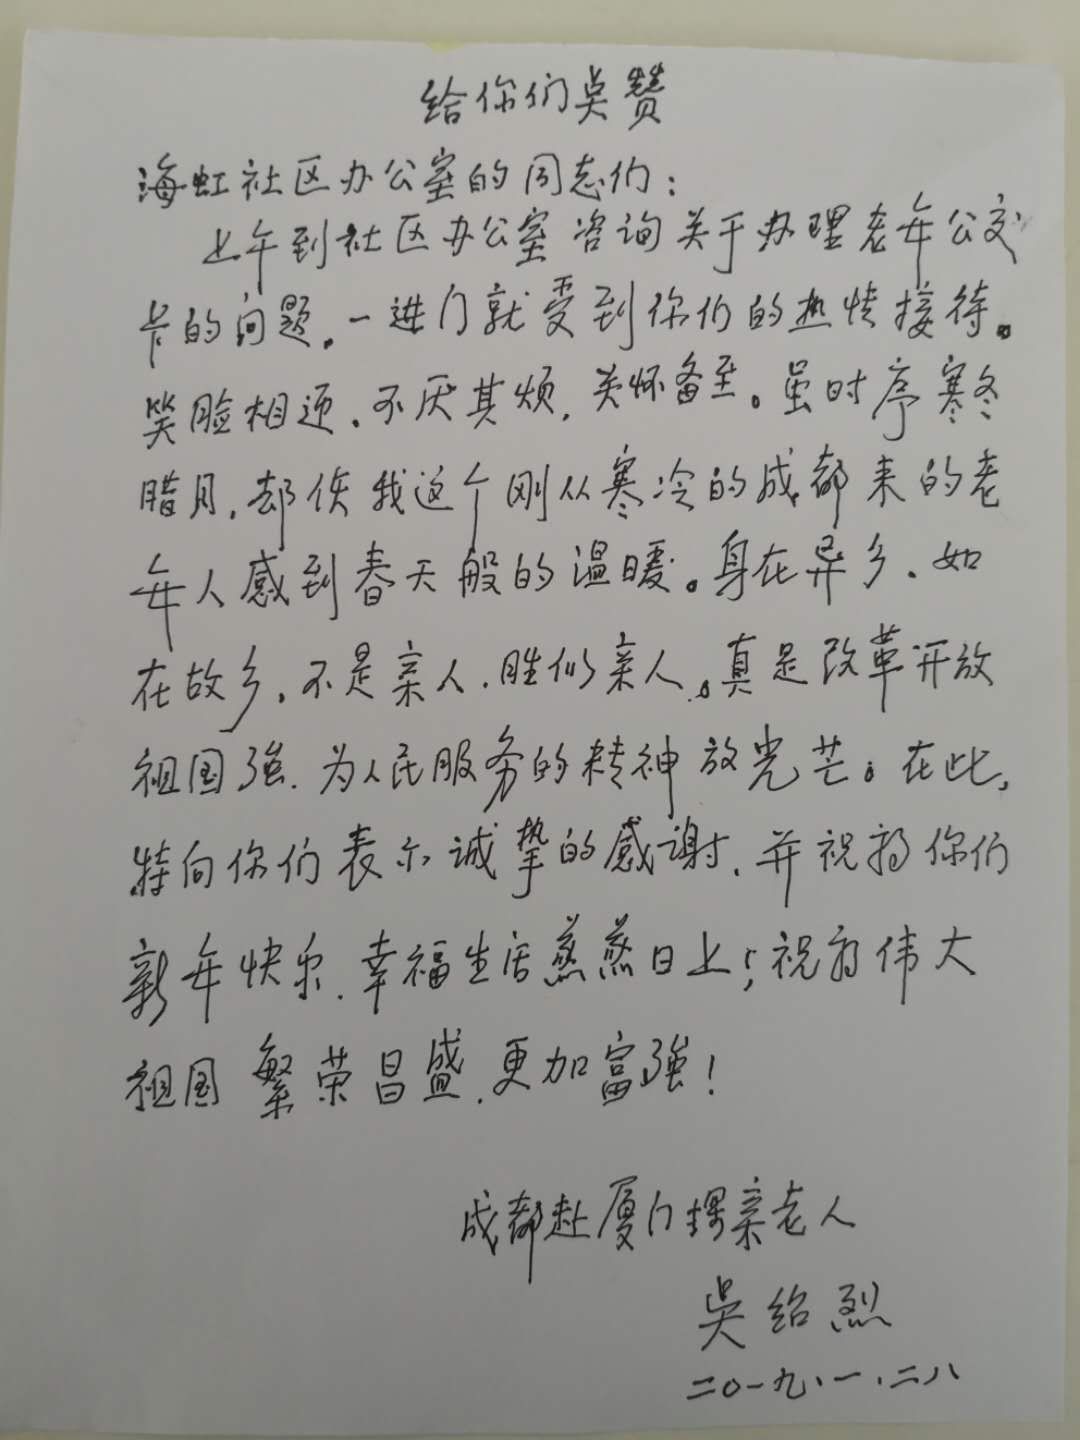 给你们点赞
海虹社区办公室的同志们：
上午到社区办公室咨询关于办理老年公交
卡的问题。一进门就受到你们的热情接待。
笑脸相迎。不厌其烦，关怀备至。虽时序寒冬
腊月，却使我这个刚从寒冷的成都来的老
年人感到春天般的温暖。身在异乡，如
在故乡，不是亲人，胜似亲人。真是改革开放
祖国强，为人民服务的精神放光芒。在此，
特向你们表示诚挚的感谢，并祝福你们
新年快乐，幸福生活蒸蒸日上；祝福伟大
祖国繁荣昌盛，更加富强！
成都赴厦门探亲老人
吴绍烈
二〇一九、一、二八